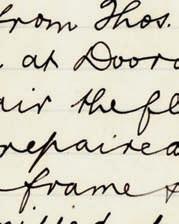 from Thos.
at Doord
air the fl
repaired
frame &